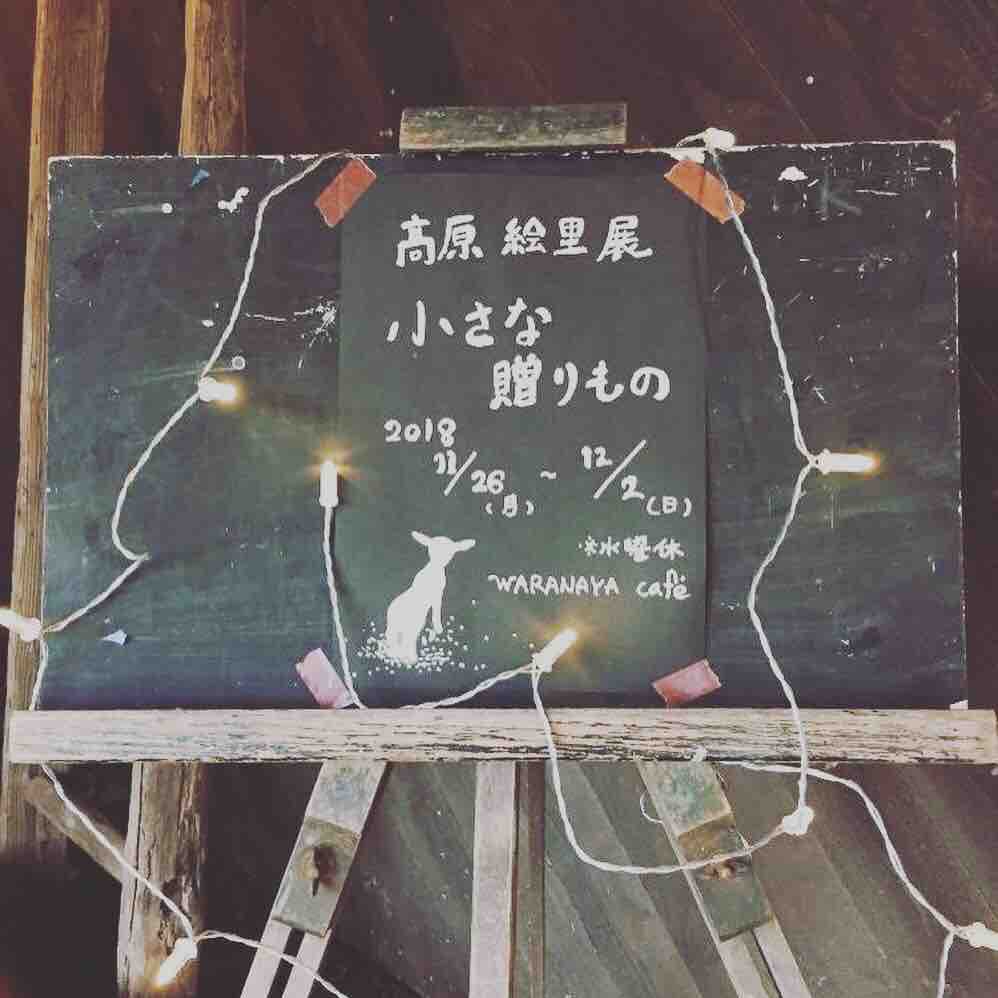 高原 絵里展
小さな
贈りもの
2018
11/26(月) ~ 12/2(日)
※水曜休
WARANAYA café